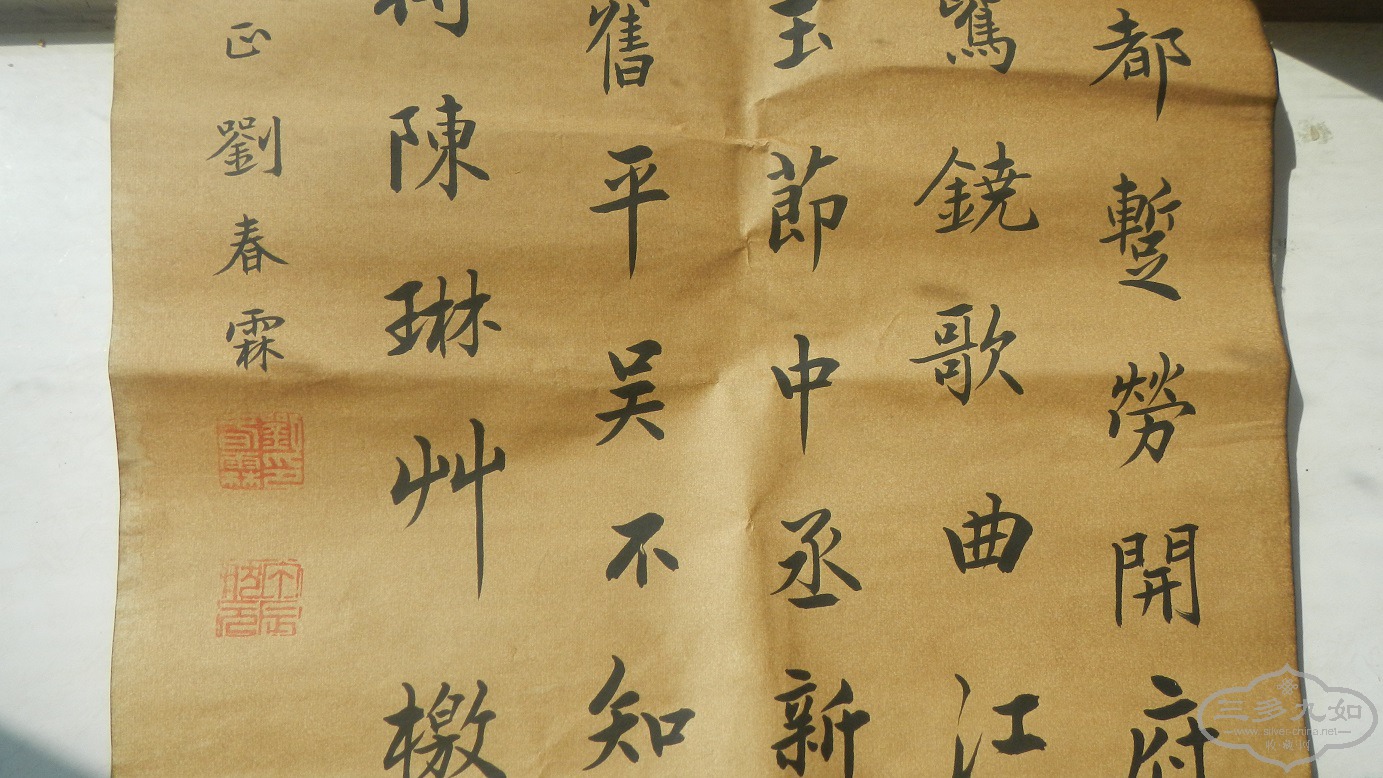 都暫勞開府
鐃歌曲江
玉莭中丞新
舊平吳不知
陳琳艸檄
正劉春霖
三多九如
www.silver-china.net
收藏网